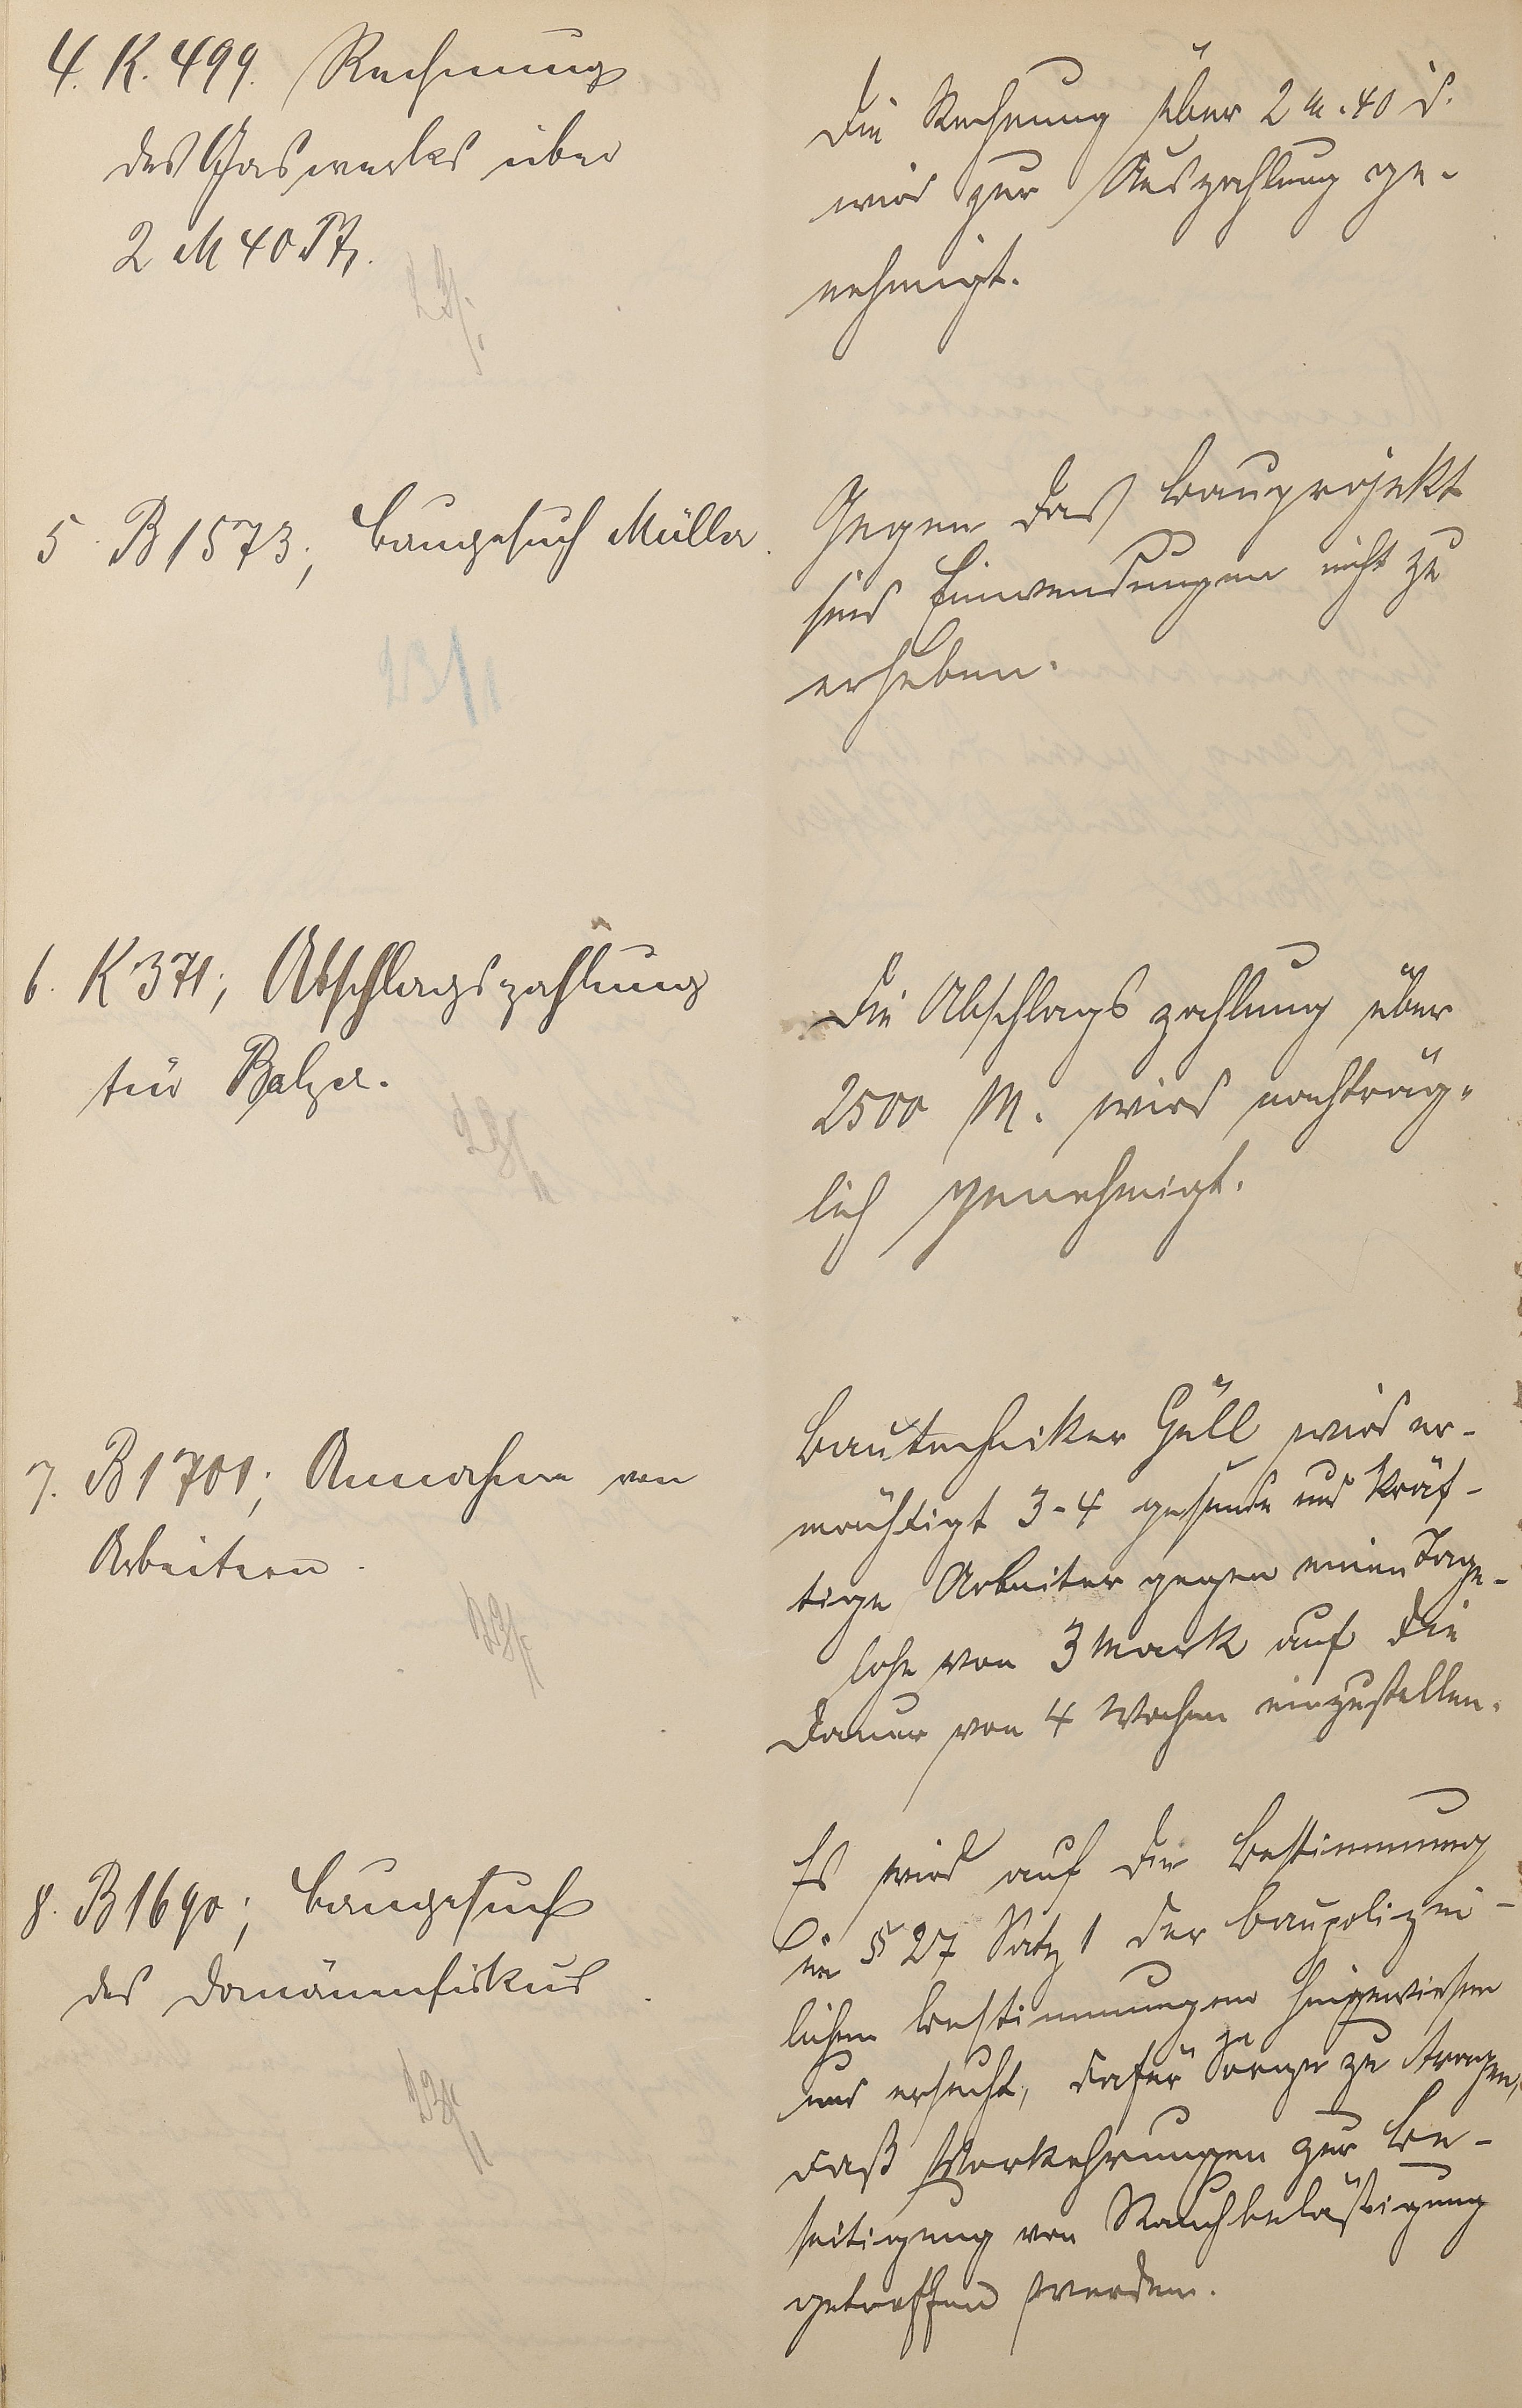 4. K. 499. Rechnung
des Gaswerks über
2 M 40 Pf.
Die Rechnung über 2 M. 40 d.
wird zur Auszahlung ge-
nehmigt.
5. B 1573; Baugesuch Müller.
23/1
Gegen das Bauprojekt
sind Einwendungen nicht zu
erheben.
6. K 371; Abschlagszahlung
für Balzer.
Die Abschlagszahlung über
2500 M. wird nachträg-
lich genehmigt.
7. B 1701; Annahme von
Arbeitern.
Bautechniker Güll wird er-
mächtigt 3-4 gesunde und kräf-
tige Arbeiter gegen einen Tage-
lohn von 3 Mark auf die
Dauer von 4 Wochen einzustellen.
8. B 1690; Baugesuch
des Domänenfiskus.
Es wird auf die Bestimmung
in § 27 Satz 1 der baupolizei-
lichen Bestimmungen hingewiesen
und ersucht, dafür Sorge zu tragen,
daß Vorkehrungen zur Be-
seitigung von Rauchbelästigung
getroffen werden.